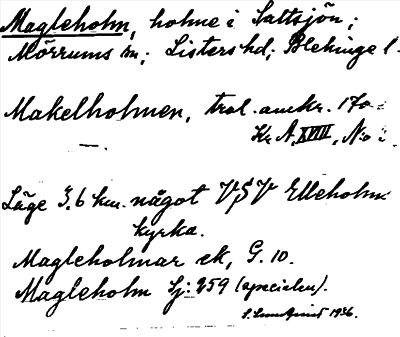 Magleholm, holme i Saltsjön;
Mörrums sn; Listers hd; Blekinge l.
Makelholmen, trol. omkr. 170
Kr. A. XVIII, N:o
Läge 3,6 km. något VSV Elleholms
kyrka.
Magleholmar ek, G. 10.
Magleholm Sj: 259 (specialen).
1936.